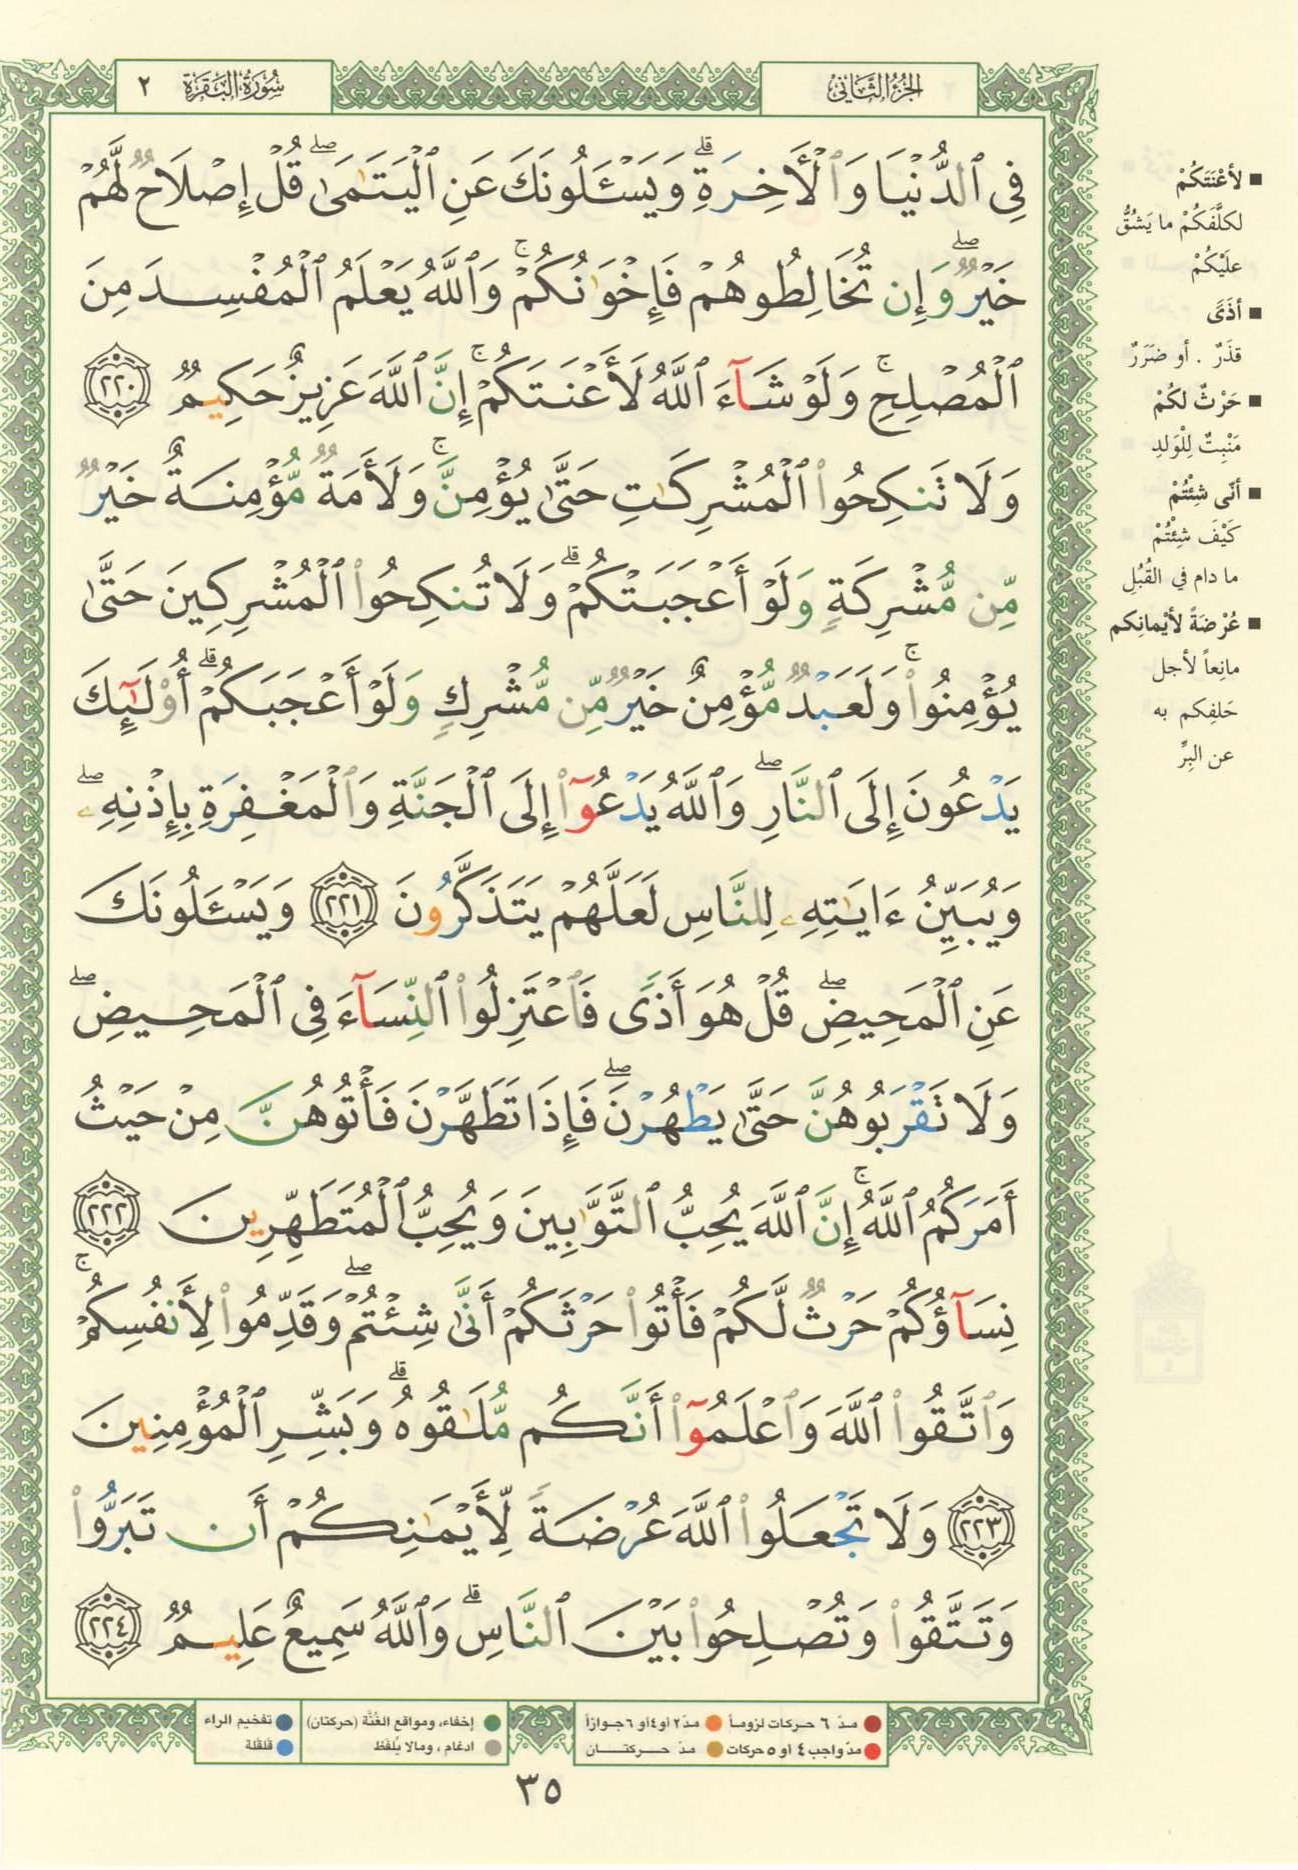 الجزء الثاني
سورة البقرة ٢
فِى ٱلدُّنْيَا وَٱلْأَخِرَةِ ۗ وَيَسْـَٔلُونَكَ عَنِ ٱلْيَتَـٰمَىٰ ۖ قُلْ إِصْلَاحٌ لَّهُمْ
خَيْرٌ ۖ وَإِن تُخَالِطُوهُمْ فَإِخْوَٰنُكُمْ ۚ وَٱللَّهُ يَعْلَمُ ٱلْمُفْسِدَ مِنَ
ٱلْمُصْلِحِ ۚ وَلَوْ شَآءَ ٱللَّهُ لَأَعْنَتَكُمْ ۚ إِنَّ ٱللَّهَ عَزِيزٌ حَكِيمٌ ٢٢٠
وَلَا تَنكِحُوا۟ ٱلْمُشْرِكَـٰتِ حَتَّىٰ يُؤْمِنَّ ۚ وَلَأَمَةٌ مُّؤْمِنَةٌ خَيْرٌ
مِّن مُّشْرِكَةٍ وَلَوْ أَعْجَبَتْكُمْ ۗ وَلَا تُنكِحُوا۟ ٱلْمُشْرِكِينَ حَتَّىٰ
يُؤْمِنُوا۟ ۚ وَلَعَبْدٌ مُّؤْمِنٌ خَيْرٌ مِّن مُّشْرِكٍ وَلَوْ أَعْجَبَكُمْ ۗ أُو۟لَـٰٓئِكَ
يَدْعُونَ إِلَى ٱلنَّارِ ۖ وَٱللَّهُ يَدْعُوٓا۟ إِلَى ٱلْجَنَّةِ وَٱلْمَغْفِرَةِ بِإِذْنِهِۦ ۖ
وَيُبَيِّنُ ءَايَـٰتِهِۦ لِلنَّاسِ لَعَلَّهُمْ يَتَذَكَّرُونَ ٢٢١ وَيَسْـَٔلُونَكَ
عَنِ ٱلْمَحِيضِ ۖ قُلْ هُوَ أَذًى فَٱعْتَزِلُوا۟ ٱلنِّسَآءَ فِى ٱلْمَحِيضِ ۖ
وَلَا تَقْرَبُوهُنَّ حَتَّىٰ يَطْهُرْنَ ۖ فَإِذَا تَطَهَّرْنَ فَأْتُوهُنَّ مِنْ حَيْثُ
أَمَرَكُمُ ٱللَّهُ ۚ إِنَّ ٱللَّهَ يُحِبُّ ٱلتَّوَّٰبِينَ وَيُحِبُّ ٱلْمُتَطَهِّرِينَ ٢٢٢
نِسَآؤُكُمْ حَرْثٌ لَّكُمْ فَأْتُوا۟ حَرْثَكُمْ أَنَّىٰ شِئْتُمْ ۖ وَقَدِّمُوا۟ لِأَنفُسِكُمْ ۚ
وَٱتَّقُوا۟ ٱللَّهَ وَٱعْلَمُوٓا۟ أَنَّكُم مُّلَـٰقُوهُ ۗ وَبَشِّرِ ٱلْمُؤْمِنِينَ
٢٢٣ وَلَا تَجْعَلُوا۟ ٱللَّهَ عُرْضَةً لِّأَيْمَـٰنِكُمْ أَن تَبَرُّوا۟
وَتَتَّقُوا۟ وَتُصْلِحُوا۟ بَيْنَ ٱلنَّاسِ ۗ وَٱللَّهُ سَمِيعٌ عَلِيمٌ ٢٢٤
■ لأعْنَتَكُمْ
لكلَّفَكُمْ ما يَشُقُّ
علَيْكُمْ
■ أذًى
قذَرٌ . أو ضَرَرٌ
■ حَرْثٌ لكُمْ
مَنْبِتٌ لِلْوَلدِ
■ أنّى شِئْتُمْ
كَيْفَ شِئْتُمْ
ما دام في القُبُلِ
■ عُرْضَةً لأيْمانِكم
مانِعاً لأجل
حَلفِكم به
عن البِرِّ
مدّ ٦ حركات لزوماً
مدّ ٢ أو ٤ أو ٦ جوازاً
مدّ واجب ٤ أو ٥ حركات
مدّ حركتان
إخفاء، ومواقع الغُنَّة (حركتان)
ادغام، ومالا يُلفَظ
تفخيم الراء
قلقلة
٣٥